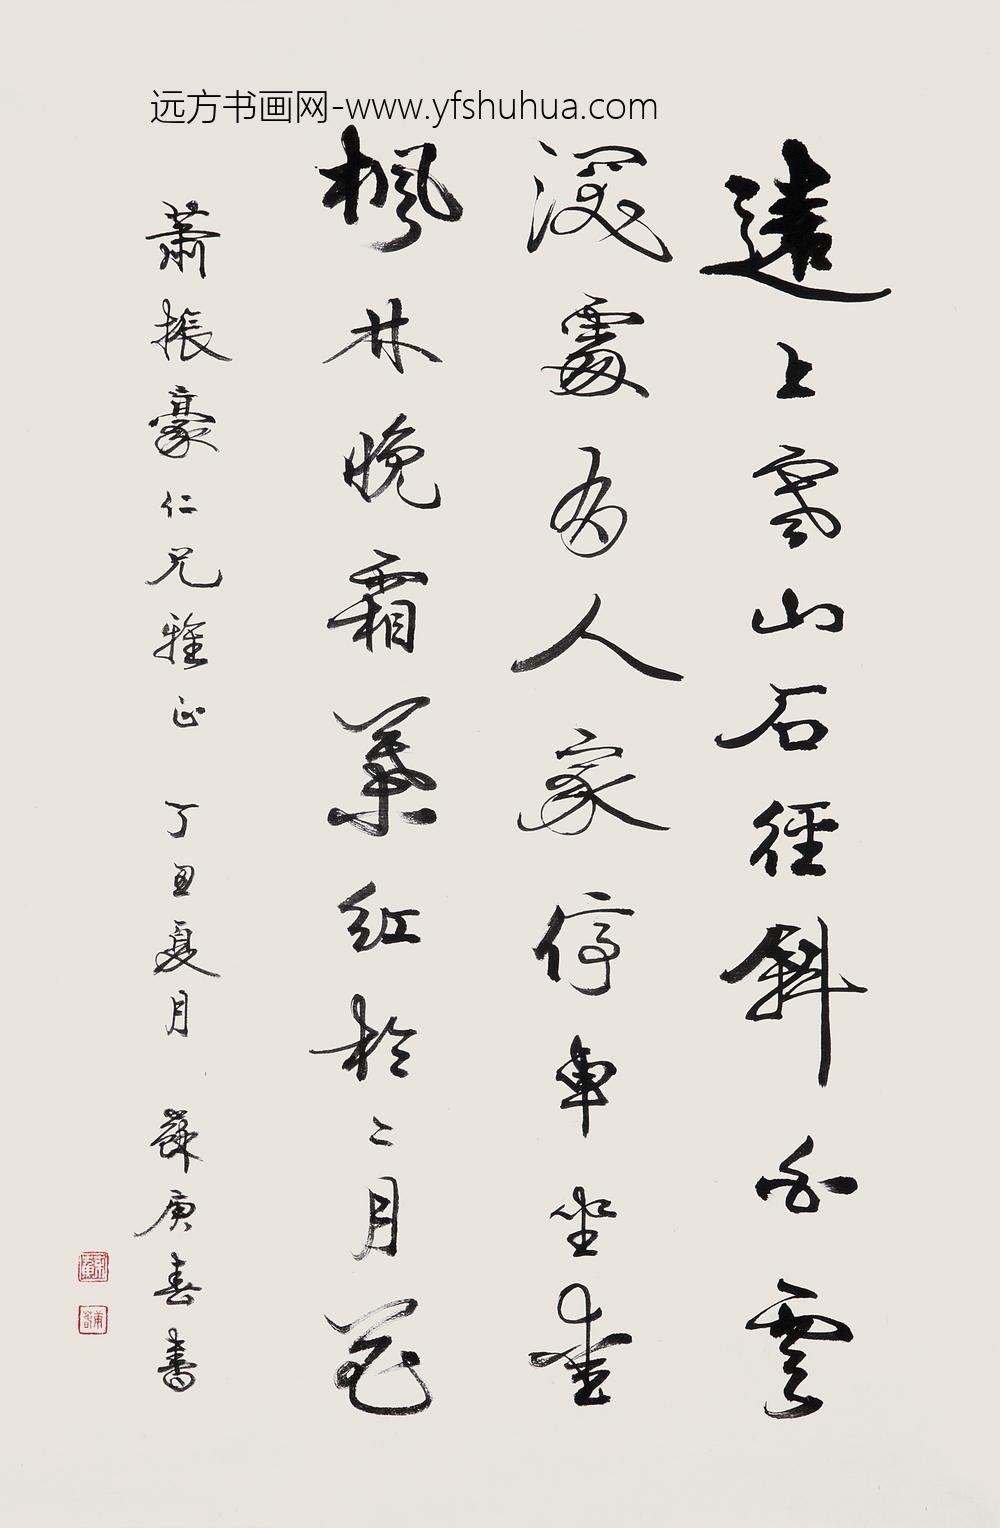 远方书画网-www.yfshuhua.com
遠上寒山石徑斜白雲
深處有人家停車坐愛
楓林晚霜葉紅於二月花
蕭振豪仁兄雅正 丁丑夏月 蘇庚春書